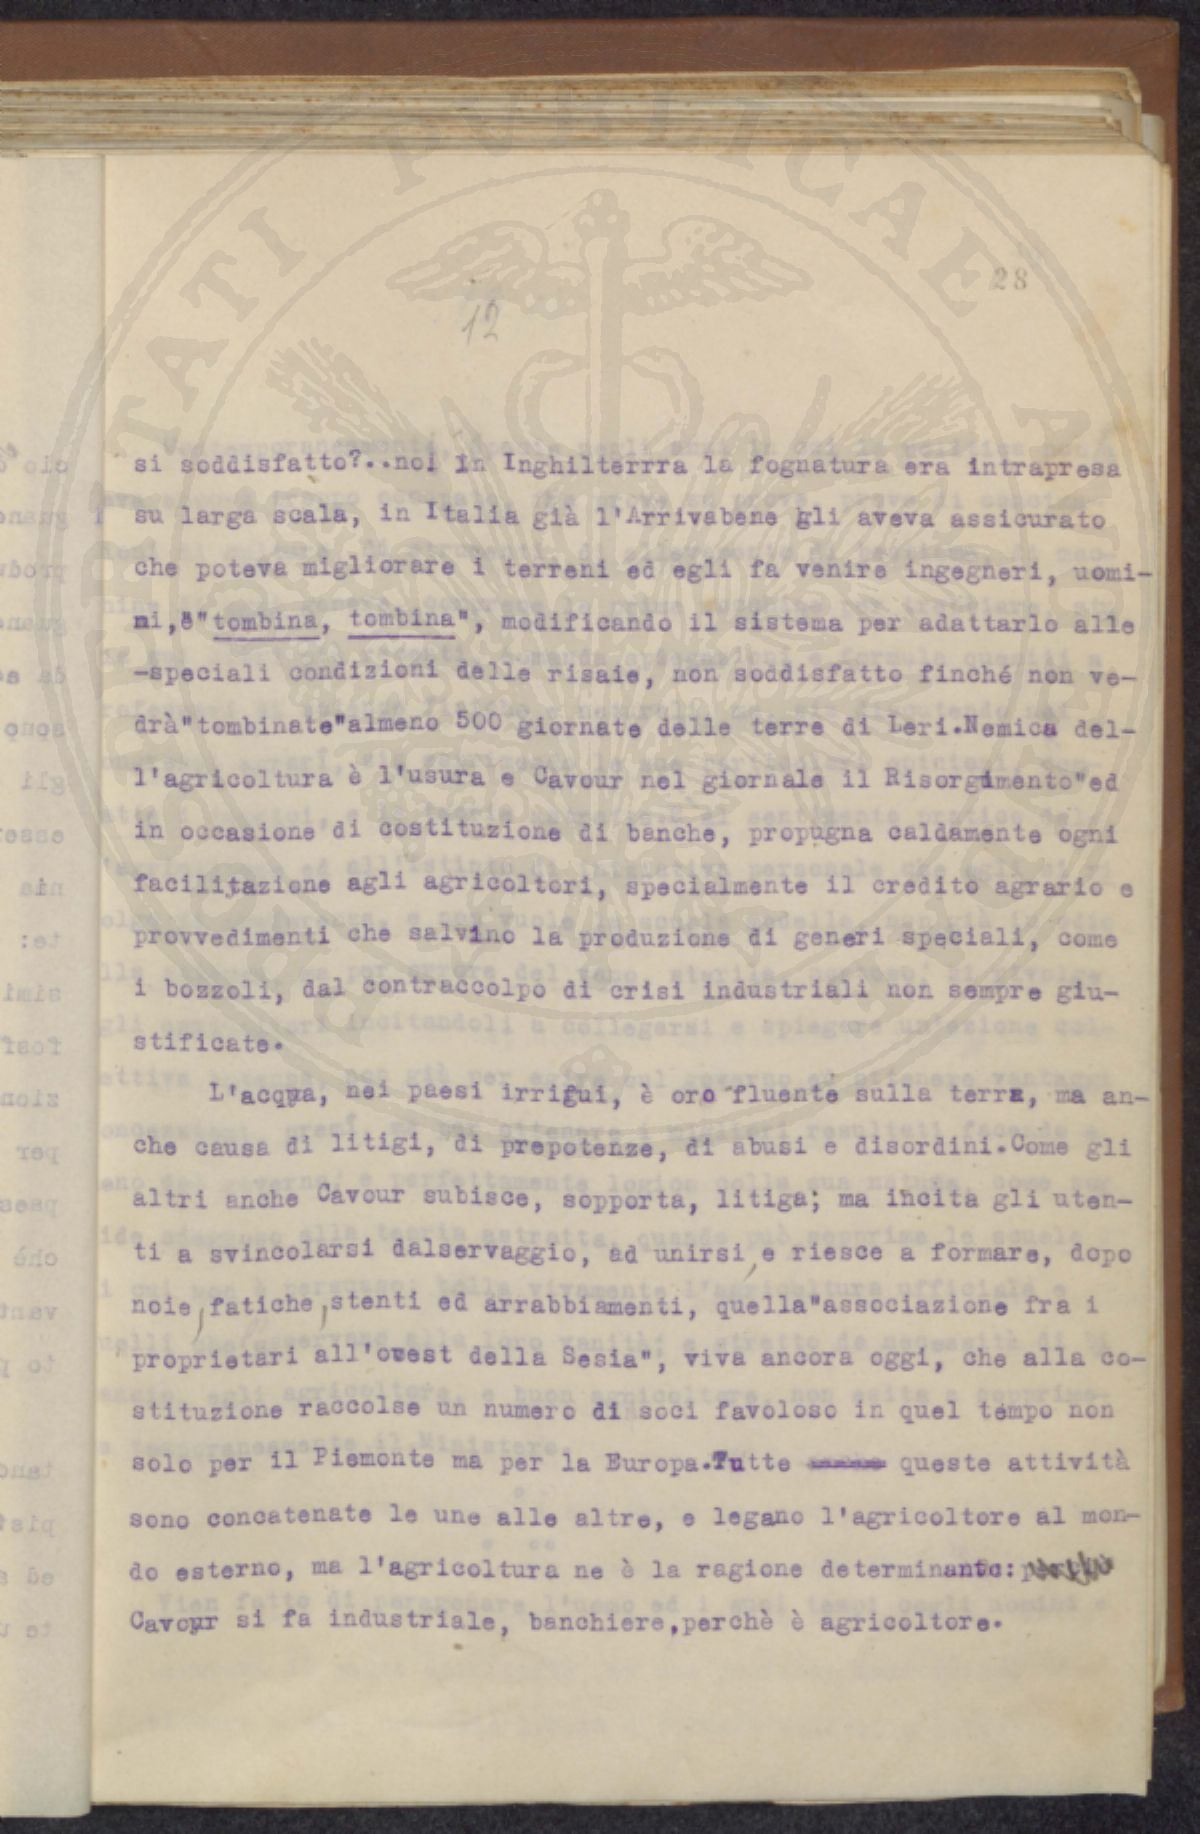 28
12
si soddisfatto?..no! In Inghilterrra la fognatura era intrapresa
su larga scala, in Italia già l'Arrivabene gli aveva assicurato
che poteva migliorare i terreni ed egli fa venire ingegneri, uomi-
ni,e"tombina, tombina", modificando il sistema per adattarlo alle
-speciali condizioni delle risaie, non soddisfatto finché non ve-
drà"tombinate"almeno 500 giornate delle terre di Leri.Nemica del-
l'agricoltura è l'usura e Cavour nel giornale il Risorgimento"ed
in occasione di costituzione di banche, propugna caldamente ogni
facilitazione agli agricoltori, specialmente il credito agrario e
provvedimenti che salvino la produzione di generi speciali, come
i bozzoli, dal contraccolpo di crisi industriali non sempre giu-
stificate.
L'acqua, nei paesi irrigui, è oro fluente sulla terra, ma an-
che causa di litigi, di prepotenze, di abusi e disordini.Come gli
altri anche Cavour subisce, sopporta, litiga; ma incita gli uten-
ti a svincolarsi dalservaggio, ad unirsi,e riesce a formare, dopo
noie,fatiche,stenti ed arrabbiamenti, quella"associazione fra i
proprietari all'ovest della Sesia", viva ancora oggi, che alla co-
stituzione raccolse un numero di soci favoloso in quel tempo non
solo per il Piemonte ma per la Europa.Tutte queste attività
sono concatenate le une alle altre, e legano l'agricoltore al mon-
do esterno, ma l'agricoltura ne è la ragione determinante:
Cavour si fa industriale, banchiere,perchè è agricoltore.